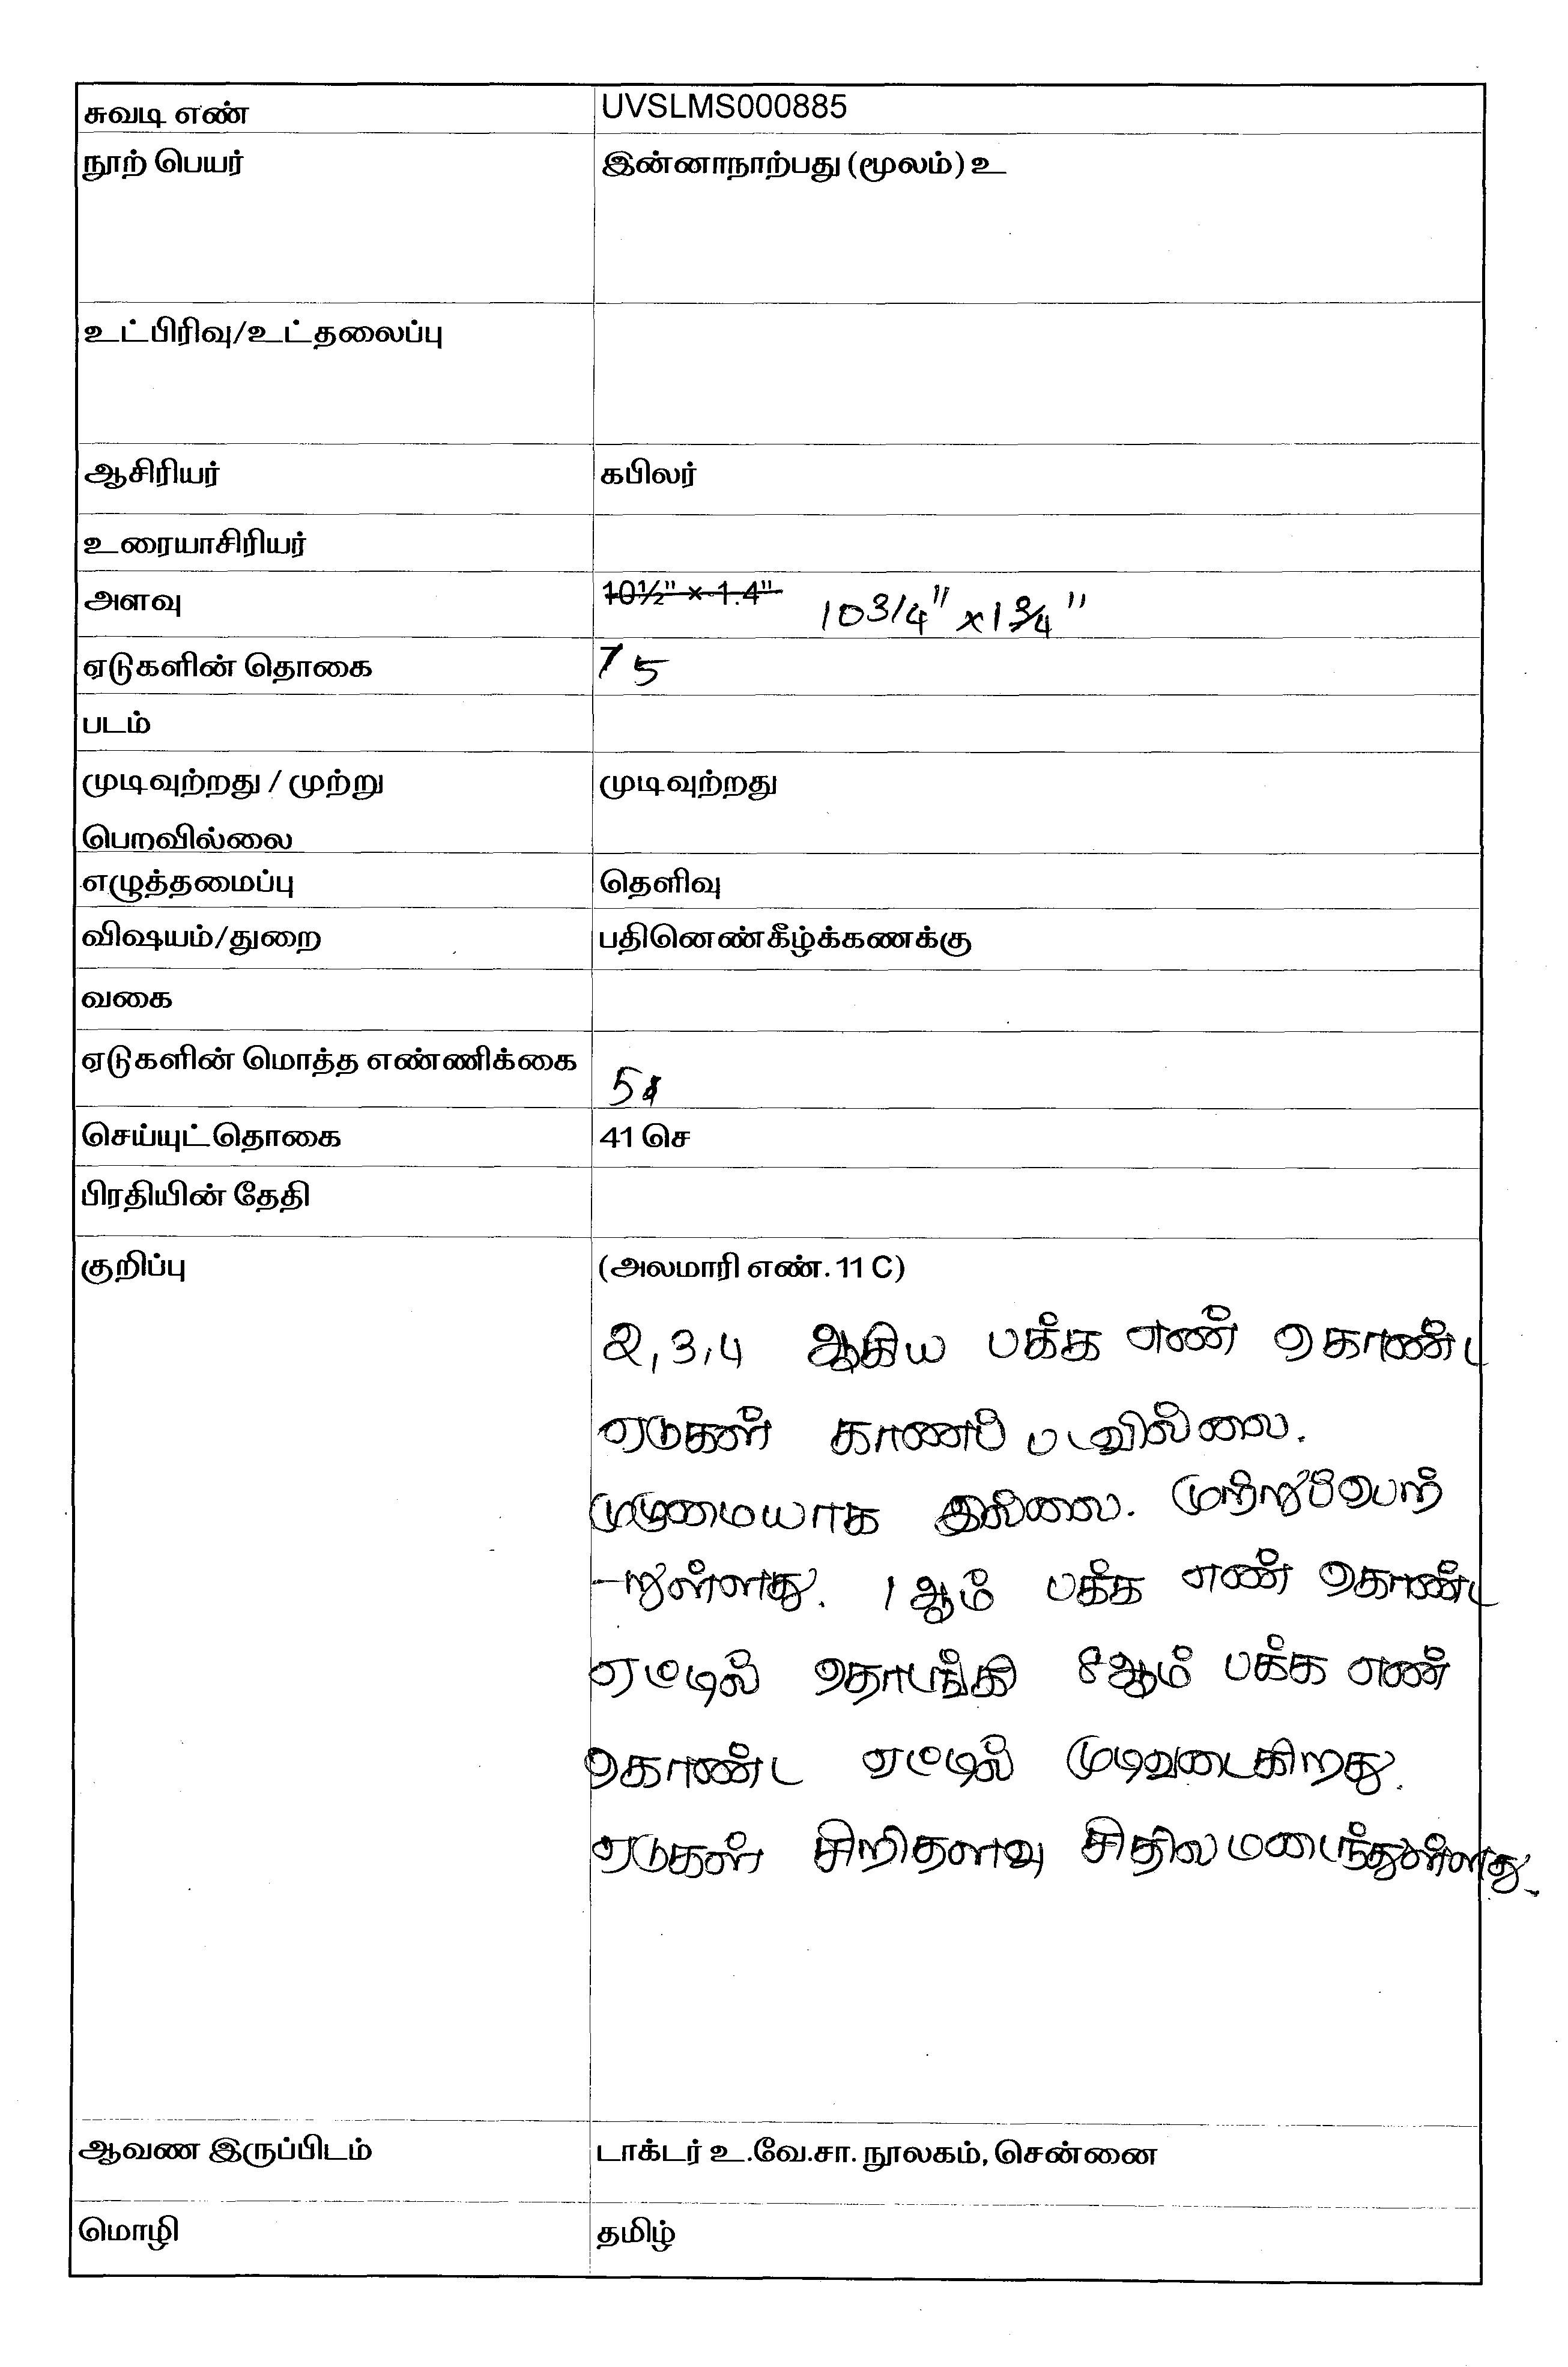 சுவடி எண் UVSLMS000885
நூற் பெயர் இன்னாநாற்பது (மூலம்) உ
உட்பிரிவு/உட்தலைப்பு
ஆசிரியர் கபிலர்
உரையாசிரியர்
அளவு 10½" × 1.4" 10 3/4" × 1 3/4"
ஏடுகளின் தொகை 7 5
படம்
முடிவுற்றது / முற்று முடிவுற்றது
பெறவில்லை
எழுத்தமைப்பு தெளிவு
விஷயம்/துறை பதினெண்கீழ்க்கணக்கு
வகை
ஏடுகளின் மொத்த எண்ணிக்கை
செய்யுட்தொகை 41 செ
பிரதியின் தேதி
குறிப்பு (அலமாரி எண். 11 C)
2,3,4 ஆகிய பக்க எண் கொண்ட
ஏடுகள் காணப் படவில்லை.
முழுமையாக இல்லை. முற்றுப்பெற்
-றுள்ளது. 1 ஆம் பக்க எண் கொண்ட
ஏட்டில் தொடங்கி 8ஆம் பக்க எண்
கொண்ட ஏட்டில் முடிவடைகிறது.
ஏடுகள் சிறிதளவு சிதிலமடைந்துள்ளது.
ஆவண இருப்பிடம் டாக்டர் உ.வே.சா. நூலகம், சென்னை
மொழி தமிழ்